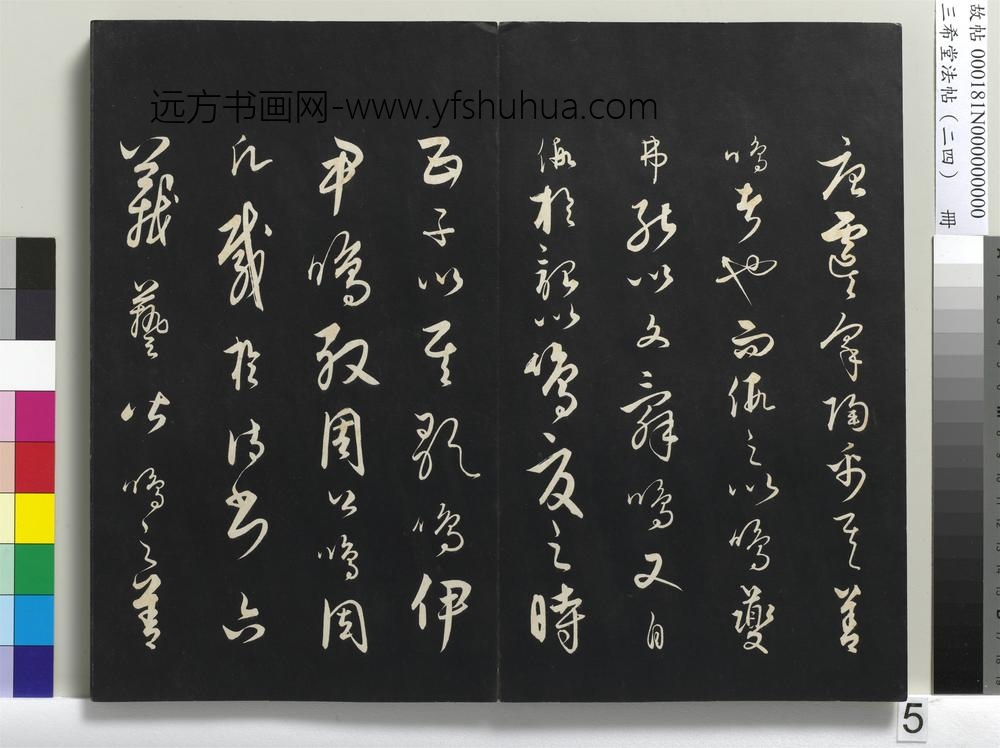 远方书画网-www.yfshuhua.com
唐虞咎陶禹其善
鳴者也而假之以鳴夔
弗能以文辭鳴又自
假於韶以鳴夏之時
五子以其歌鳴伊
尹鳴殷周公鳴周
凡載於詩書六
藝皆鳴之善
故帖 000181N000000000
三希堂法帖（二四） 冊
5